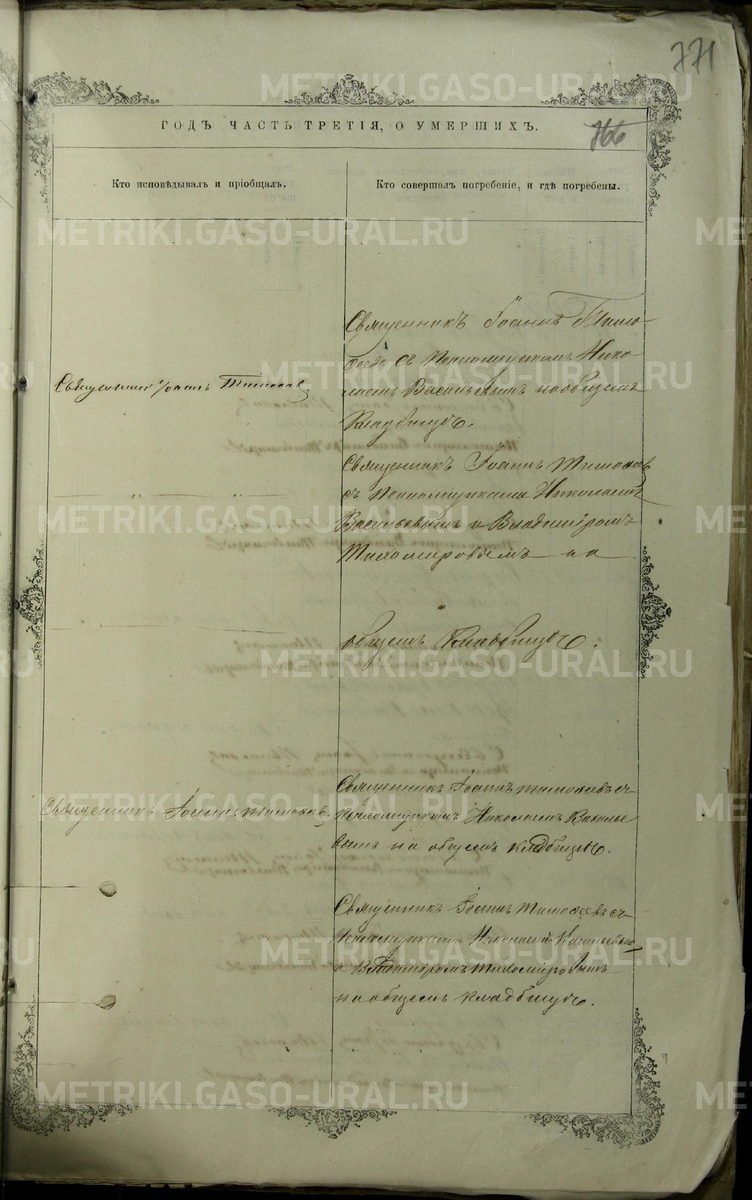 771
766
ГОДЪ ЧАСТЬ ТРЕТІЯ, О УМЕРШИХЪ.
Кто исповѣдывалъ и пріобщалъ.
Кто совершалъ погребеніе, и гдѣ погребены.
Священникъ Іоаннъ Тимо-
ѳеевъ съ Псаломщикомъ Нико-
лаемъ Васильевымъ на общемъ
Кладбищѣ.
Священникъ Іоаннъ Тимоѳеевъ
Священникъ Іоаннъ Тимоѳеевъ
съ Псаломщиками Николаемъ
Васильевымъ и Владиміромъ
Тихомировымъ на
общемъ Кладбищѣ.
" " "
Священникъ Іоаннъ Тимоѳеевъ
Священникъ Іоаннъ Тимоѳеевъ съ
псаломщикомъ Николаемъ Василье-
вымъ на общемъ кладбищѣ.
Священникъ Іоаннъ Тимоѳеевъ съ
псаломщиками Николаемъ Васильевымъ
и Владиміромъ Тихомировымъ
на общемъ кладбищѣ.
METRIKI.GASO-URAL.RU